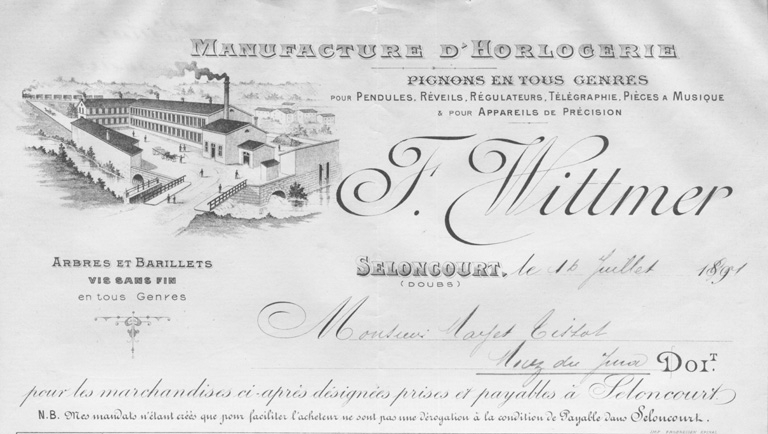 MANUFACTURE D'HORLOGERIE
PIGNONS EN TOUS GENRES
POUR PENDULES, RÉVEILS, RÉGULATEURS, TÉLÉGRAPHIE, PIÈCES A MUSIQUE
& POUR APPAREILS DE PRÉCISION
F. Wittmer
ARBRES ET BARILLETS
VIS SANS FIN
en tous Genres
SELONCOURT, le 16 Juillet 1891
(DOUBS)
Monsieur Tissot
du Jura DOIT.
pour les marchandises ci-après désignées prises et payables à Seloncourt
N.B. Mes mandats n'étant créés que pour faciliter l'acheteur ne sont pas une dérogation à la condition de Payable dans Seloncourt.